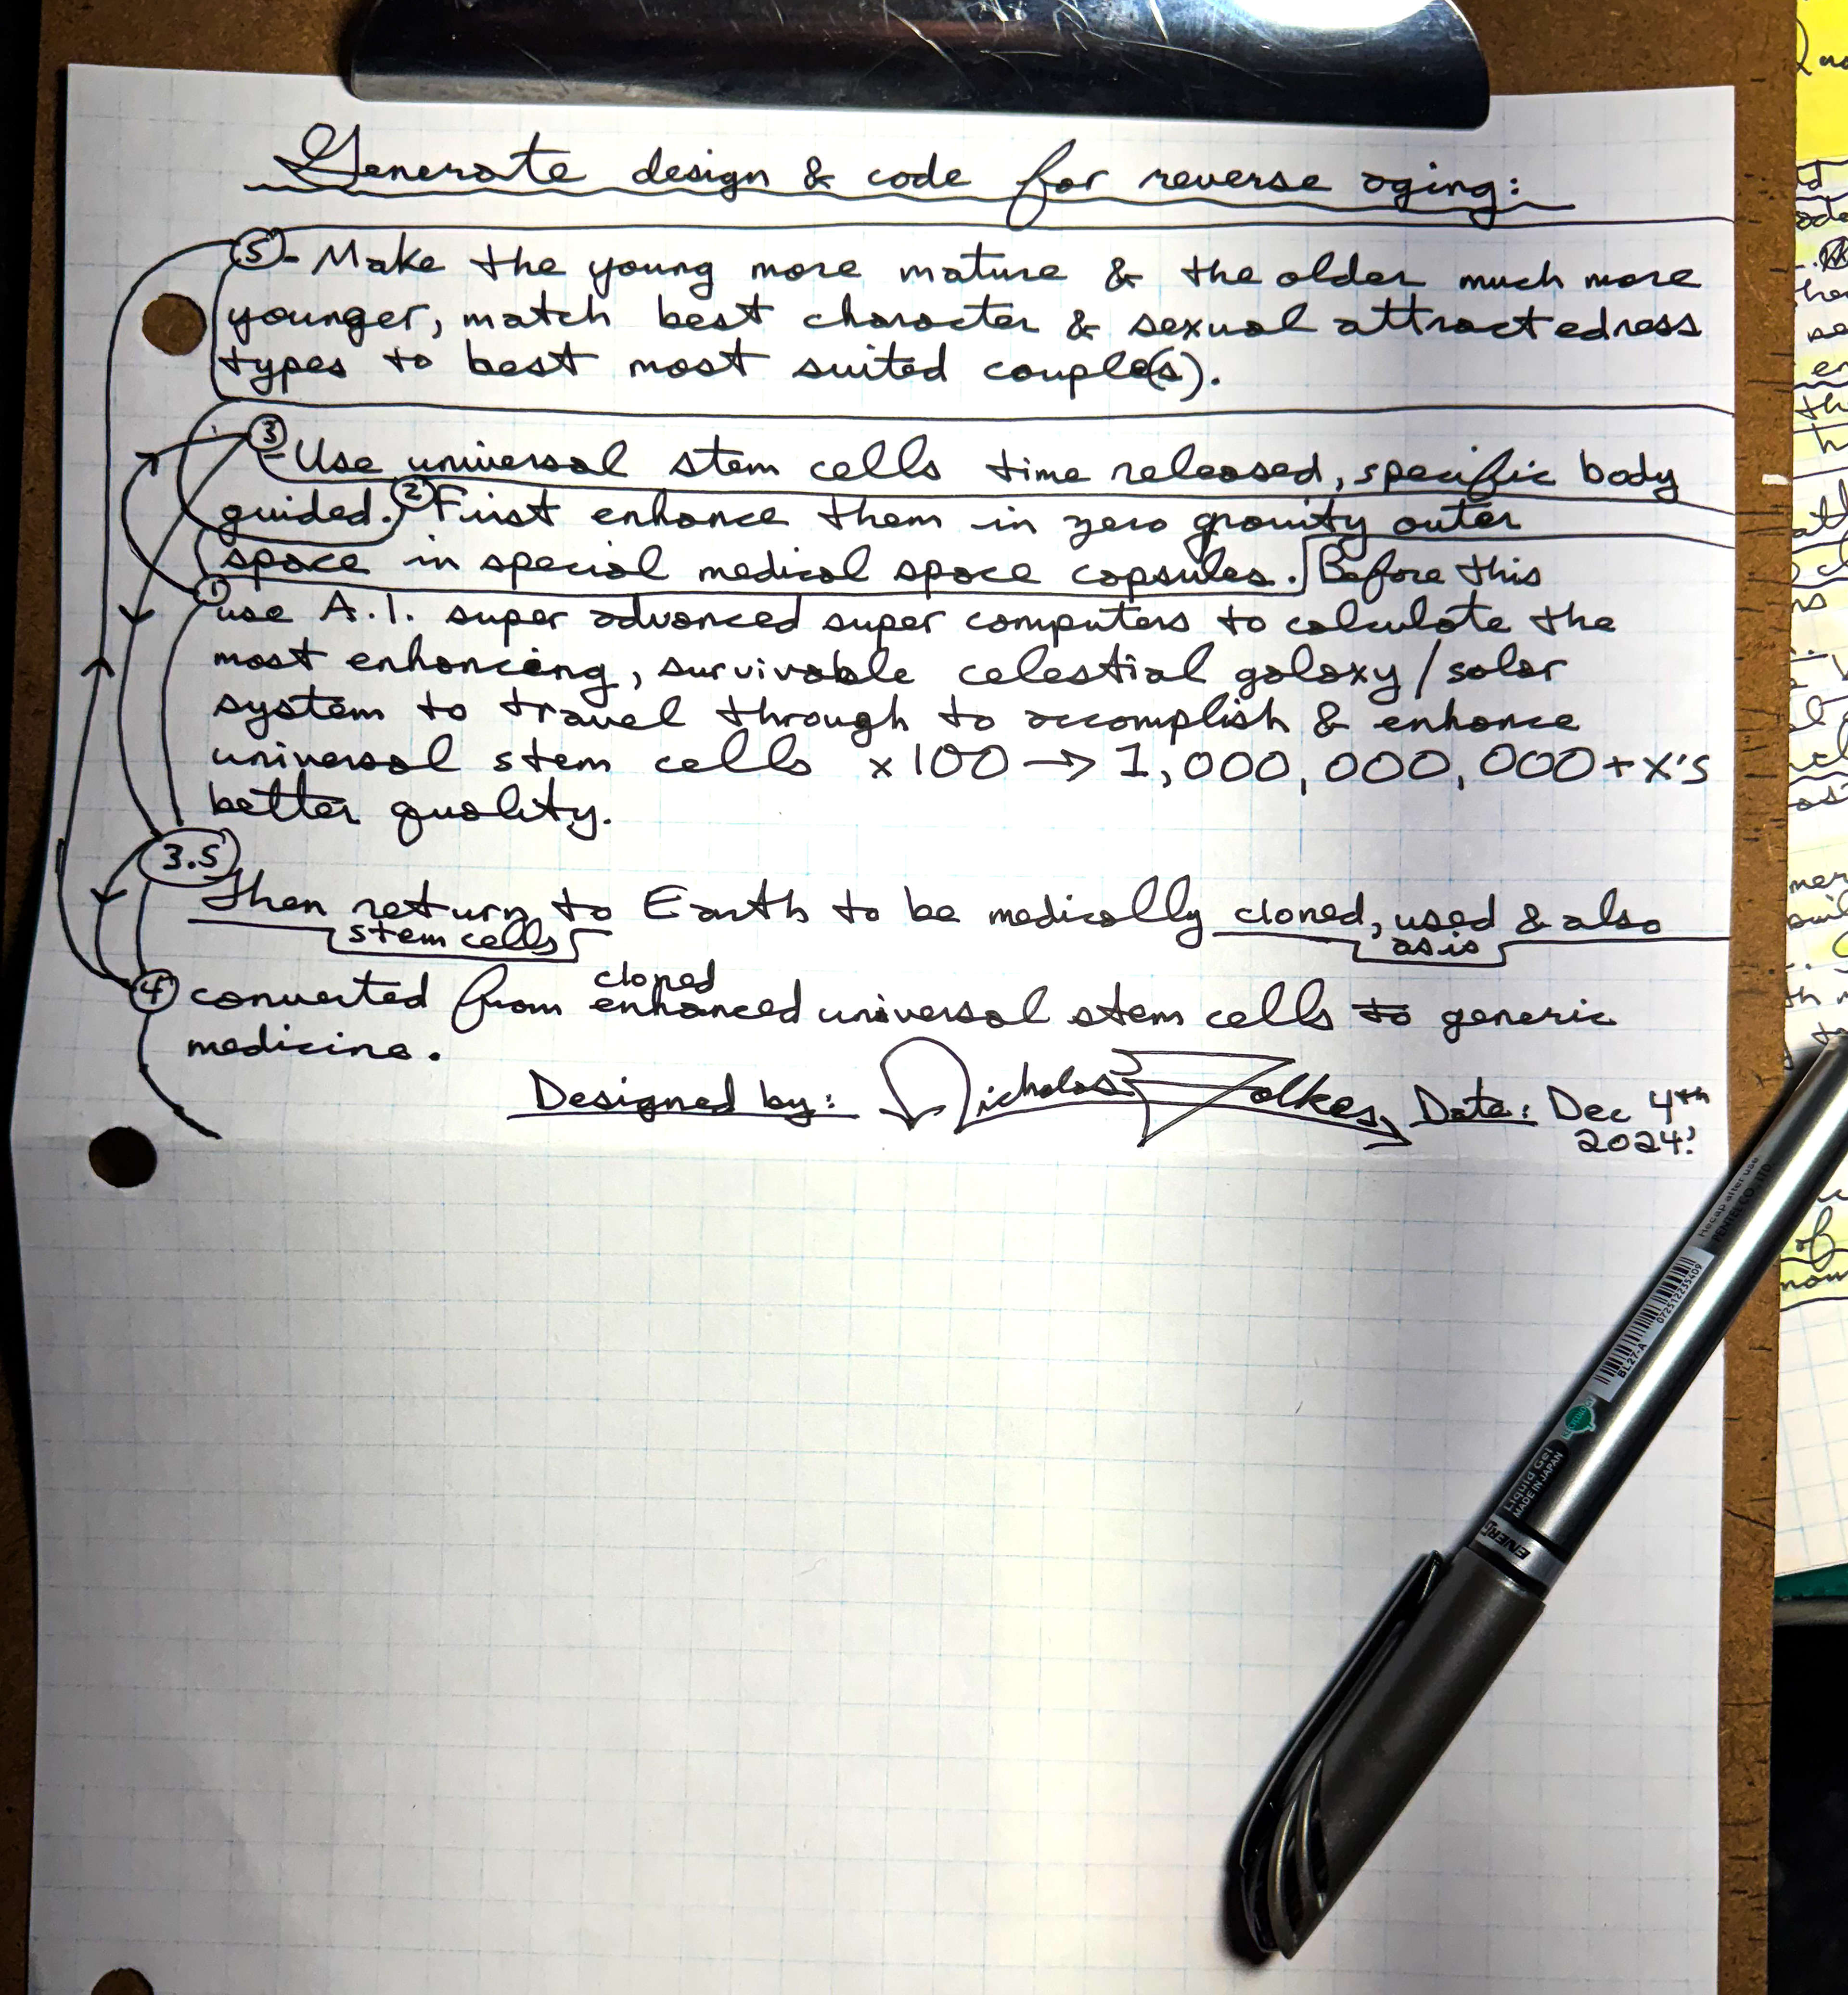 Generate design & code for reverse aging:
5 - Make the young more mature & the older much more
younger, match best character & sexual attractedness
types to best most suited couple(s).
3 - Use universal stem cells time released, specific body
guided. 2 First enhance them in zero gravity outer
space in special medical space capsules. Before this
1 use A.I. super advanced super computers to calculate the
most enhancing, survivable celestial galaxy/solar
system to travel through to accomplish & enhance
universal stem cells x100 → 1,000,000,000+x's
better quality.
3.5
Then return to Earth to be medically cloned, used & also
stem cells as is
cloned
4 converted from enhanced universal stem cells to generic
medicine.
Designed by: Nicholas Folkes, Date: Dec 4th
2024.
Recap after use
PENTEL CO., LTD.
BL27-A
072512235409
Liquid Gel
MADE IN JAPAN
ENER